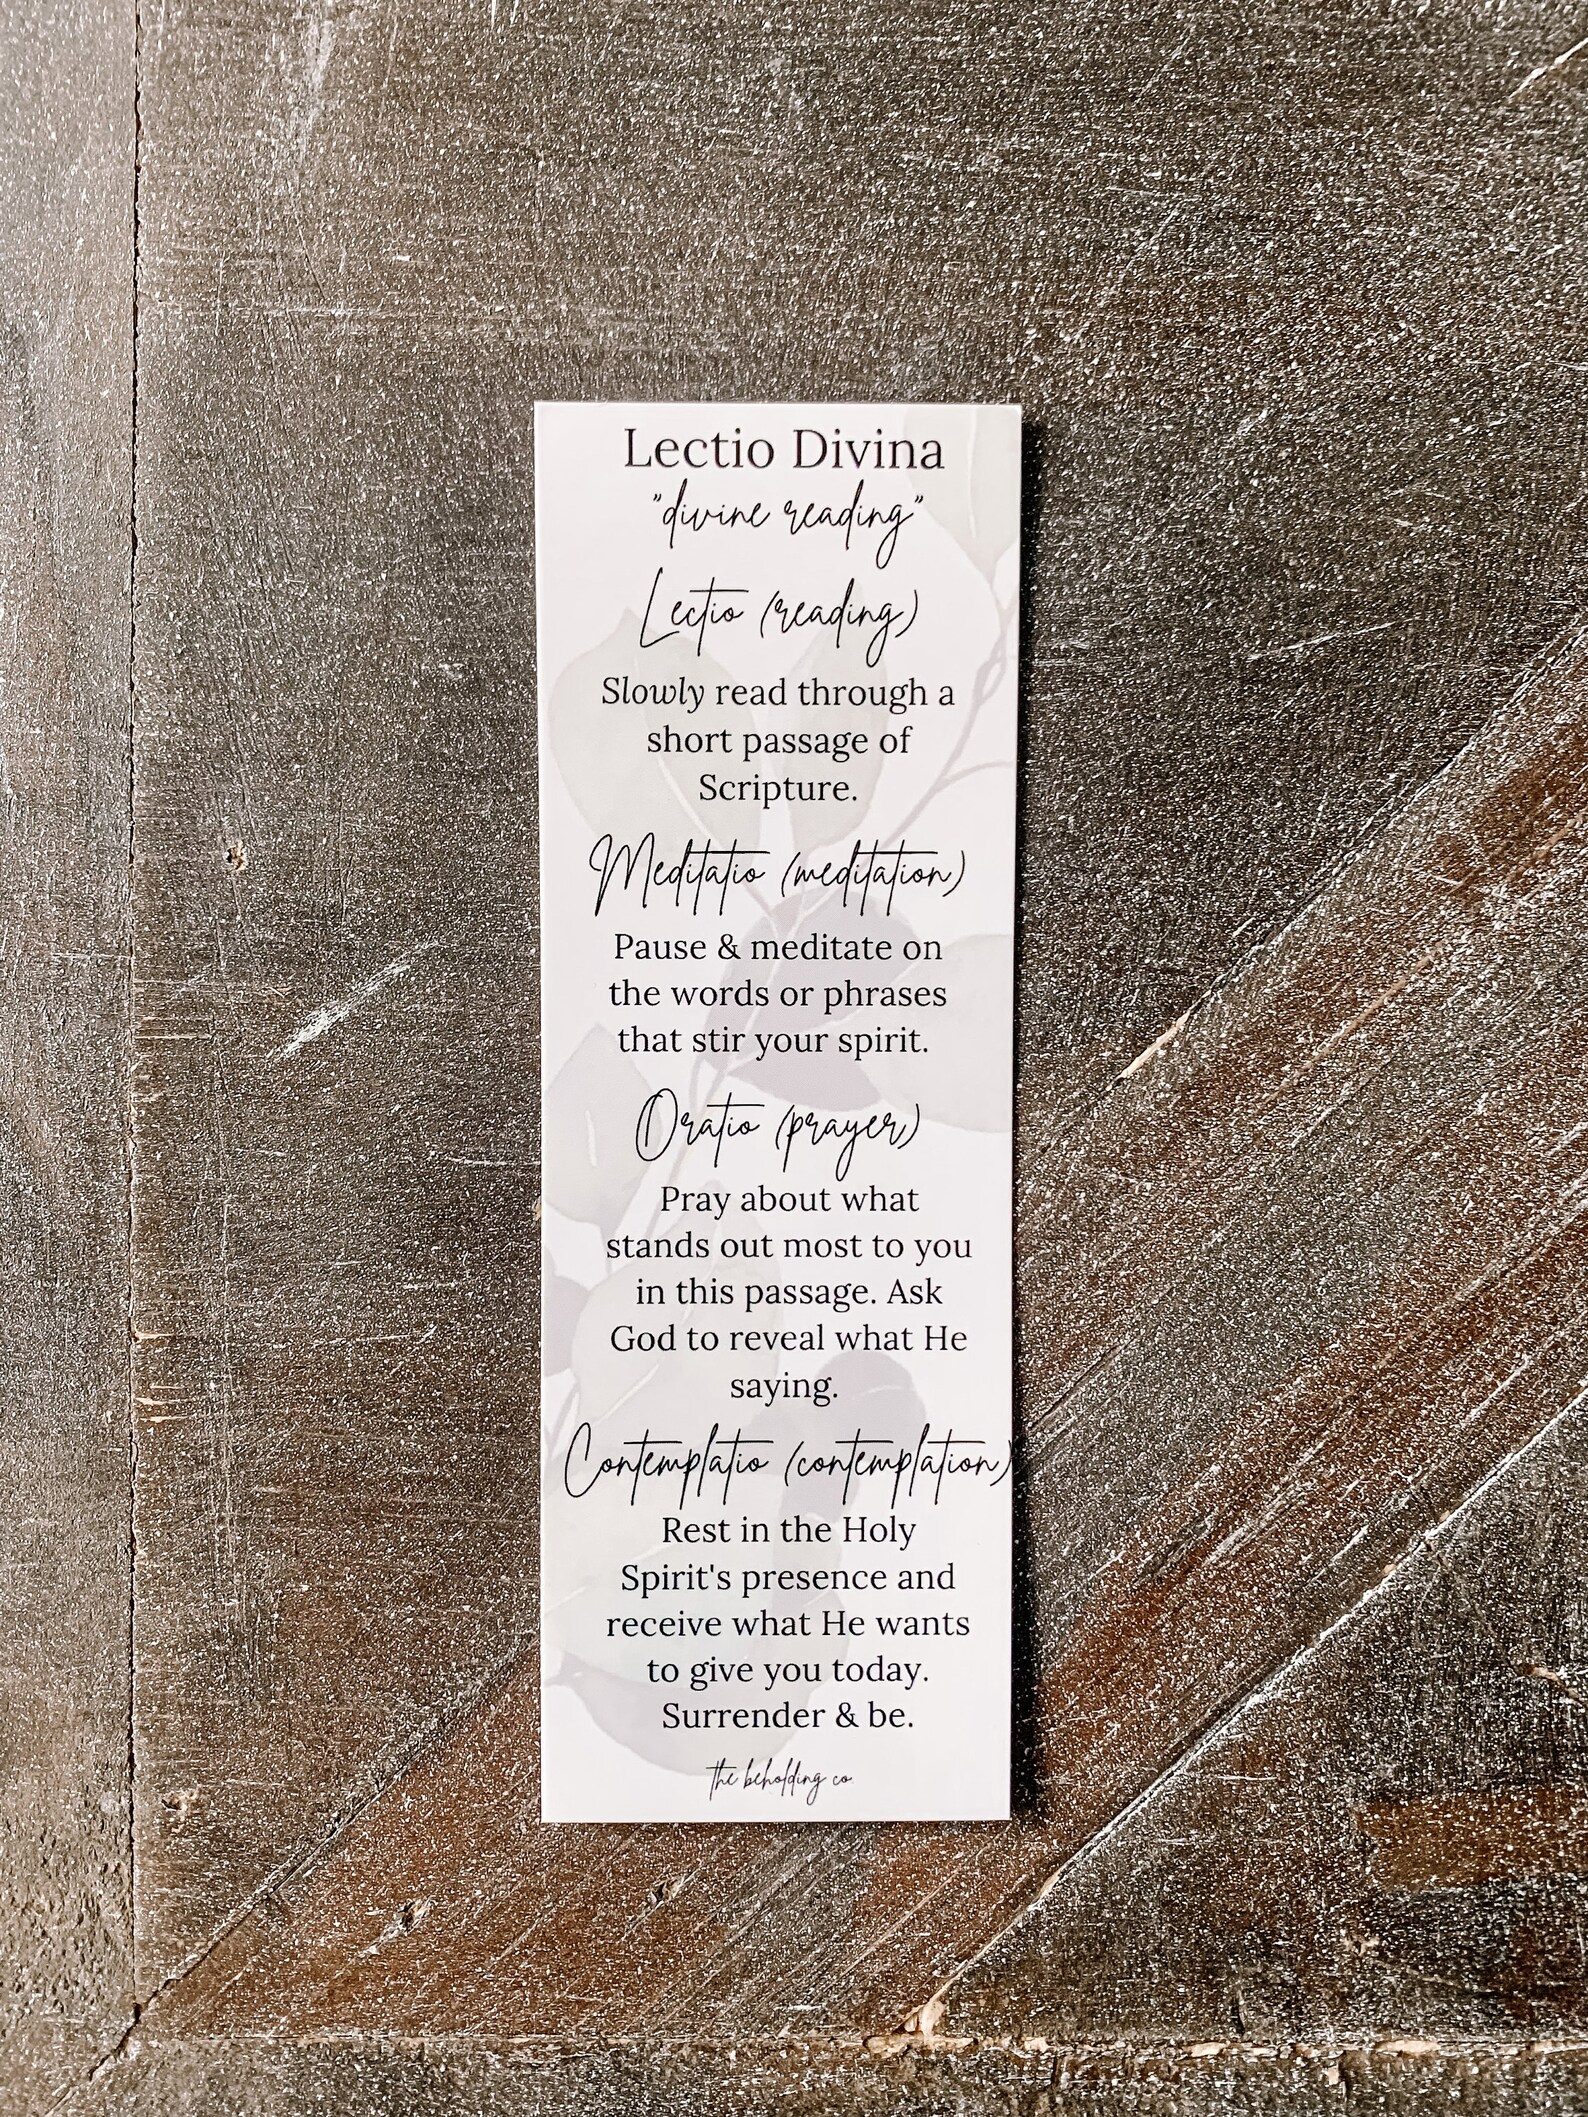 Lectio Divina
"divine reading"
Lectio (reading)
Slowly read through a
short passage of
Scripture.
Meditatio (meditation)
Pause & meditate on
the words or phrases
that stir your spirit.
Oratio (prayer)
Pray about what
stands out most to you
in this passage. Ask
God to reveal what He
saying.
Contemplatio (contemplation)
Rest in the Holy
Spirit's presence and
receive what He wants
to give you today.
Surrender & be.
the beholding co.